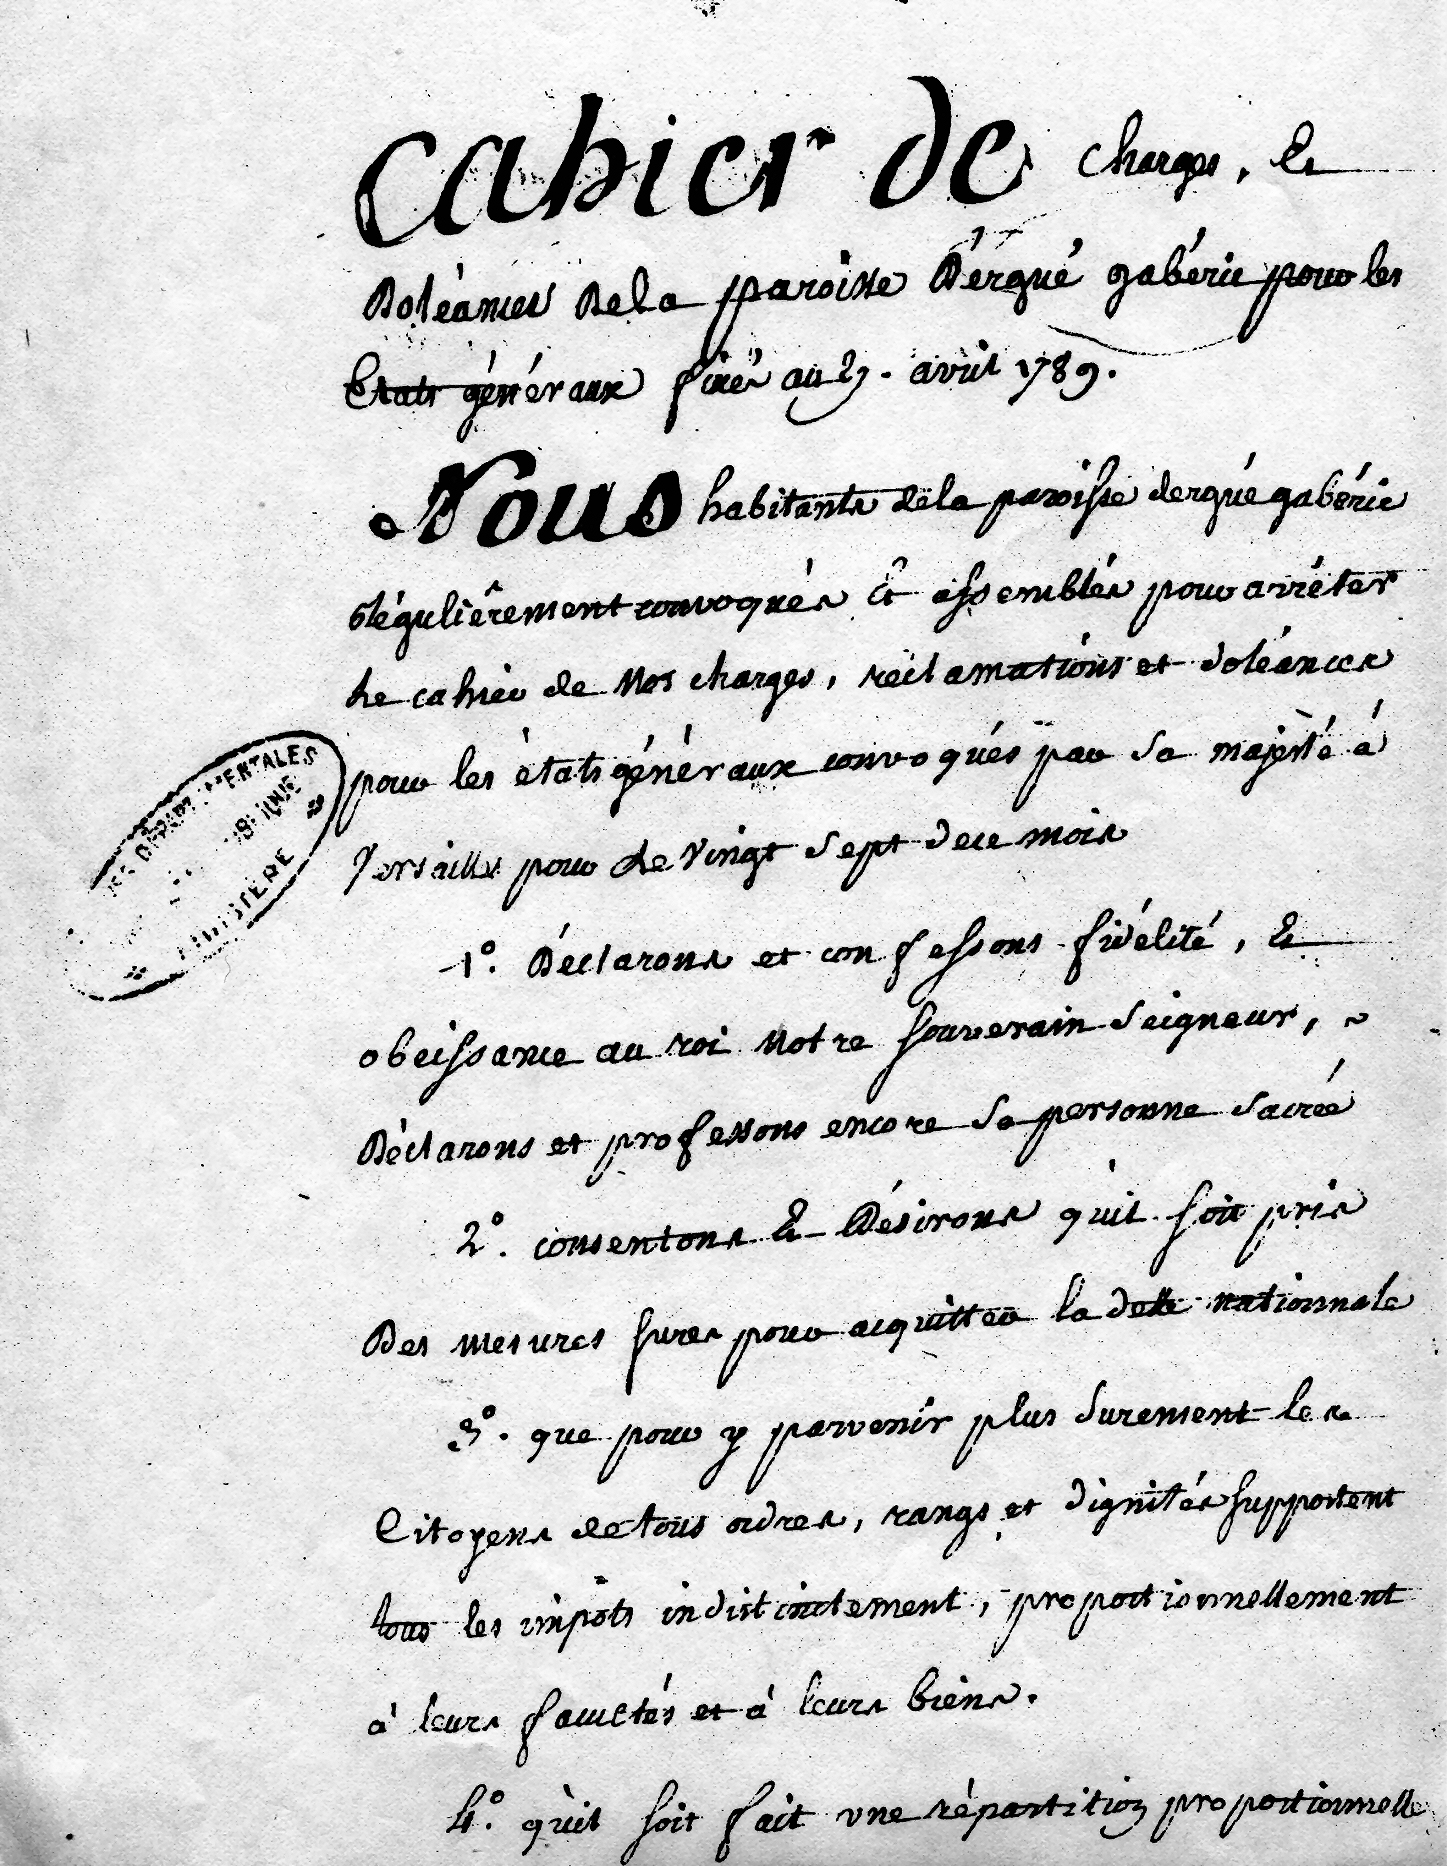 Cahier de charges, Et
Doléances de la paroisse D'ergué gabéric pour les
Etats généraux fixés au 27. avril 1789.
Nous habitants de la paroisse dergué gabéric
Régulièrement convoqués Et assemblés pour arrêter
Le cahier de Nos charges, réclamations et doléances
pour les états généraux convoqués par Sa majesté à
Versailles pour le Vingt Sept de ce mois
ARCHIVES DÉPARTEMENTALES
FINISTÈRE
1°. Déclarons et confessons fidélité, Et
obeissance au roi Notre Souverain Seigneur,
Déclarons et professons encore Sa personne Sacrée
2°. consentons Et Désirons qu'il Soit pris
Des Mesures Sures pour acquitter la dette nationnale
3°. que pour y parvenir plus Surement les
Citoyens de tous ordres, rangs et dignités Supportent
tous les impôts indistinctement, proportionnellement
à leurs facultés et à leurs biens.
4°. qu'il Soit fait une répartition proportionnelle